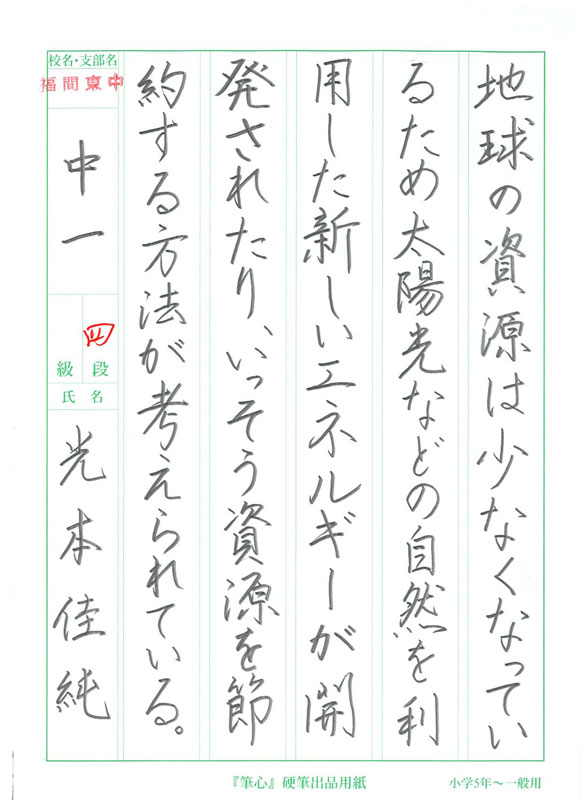 地球の資源は少なくなってい
るため太陽光などの自然を利
用した新しいエネルギーが開
発されたり、いっそう資源を節
約する方法が考えられている。
校名・支部名
福間東中
中一
四
級 段
氏 名
光本佳純
『筆心』硬筆出品用紙
小学5年〜一般用